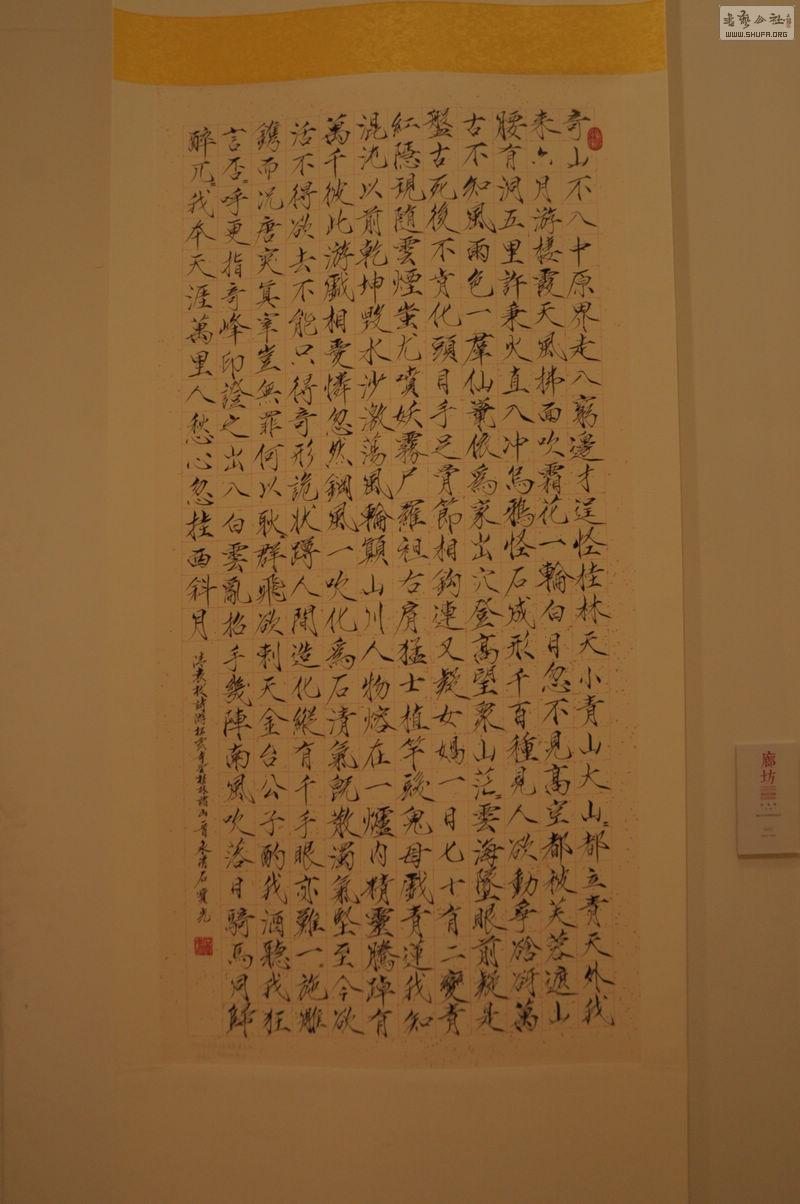 奇山不入中原界走入窮邊才逞怪桂林天小青山大山〻都立青天外我
来六月游棲霞天風拂面吹霜花一輪白日忽不見高空都被芙蓉遮山
腰有洞五里許秉火直入冲烏鴉怪石成形千百種見人欲動爭谽谺萬
古不知風雨色一羣仙鼠依為家出穴登高望眾山茫〻雲海墜眼前疑是
盤古死後不肯化頭目手足骨節相鉤連又疑女媧一日七十有二變青
紅隱現隨雲煙蚩尤噴妖霧尸羅袒右肩猛士植竿髮鬼母戲青蓮我知
混沌以前乾坤毀水沙激蕩風輪顛山川人物熔在一爐内精靈騰踔有
萬千彼此游戲相愛憐忽然鋼風一吹化為石清氣既散濁氣堅至今欲
活不得欲去不能只得奇形詭狀蹲人間造化縱有千手眼亦難一〻施雕
鐫而況唐突真宰豈無罪何以耿〻群飛欲刺天金台公子酌我酒聽我狂
言否〻呼更指奇峰印證之出入白雲亂招手幾陣南風吹落日騎馬同歸
醉兀〻我本天涯萬里人愁心忽挂西斜月
清袁枚詩游栖霞寺登桂林諸山一首永清石寶光
廊坊
書藝公社
WWW.SHUFA.ORG